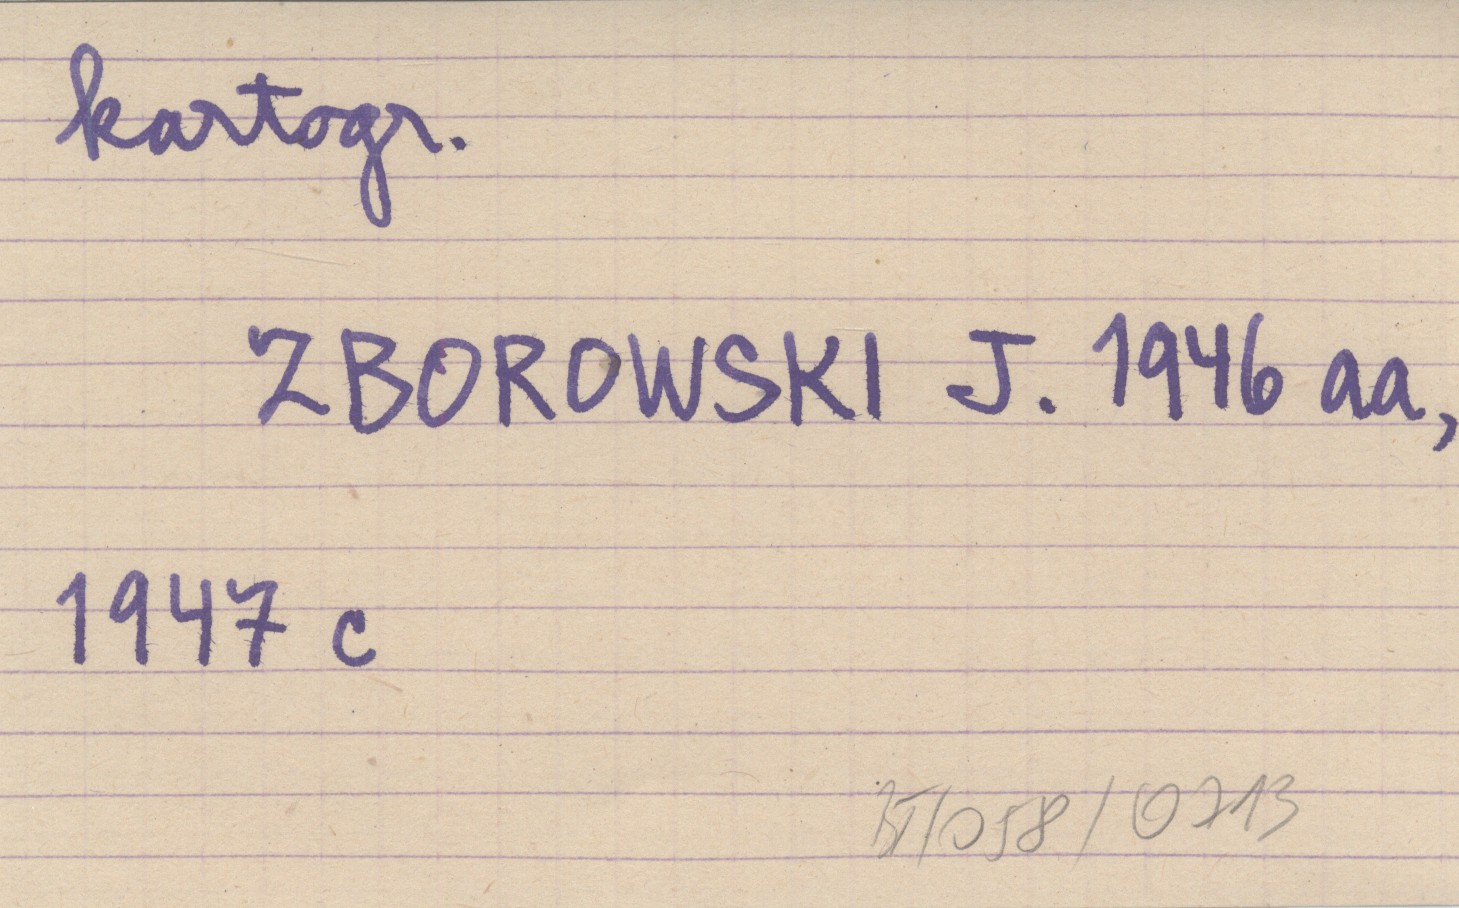 kartogr.
ZBOROWSKI J. 1946 aa,
1947 c
/058/0713